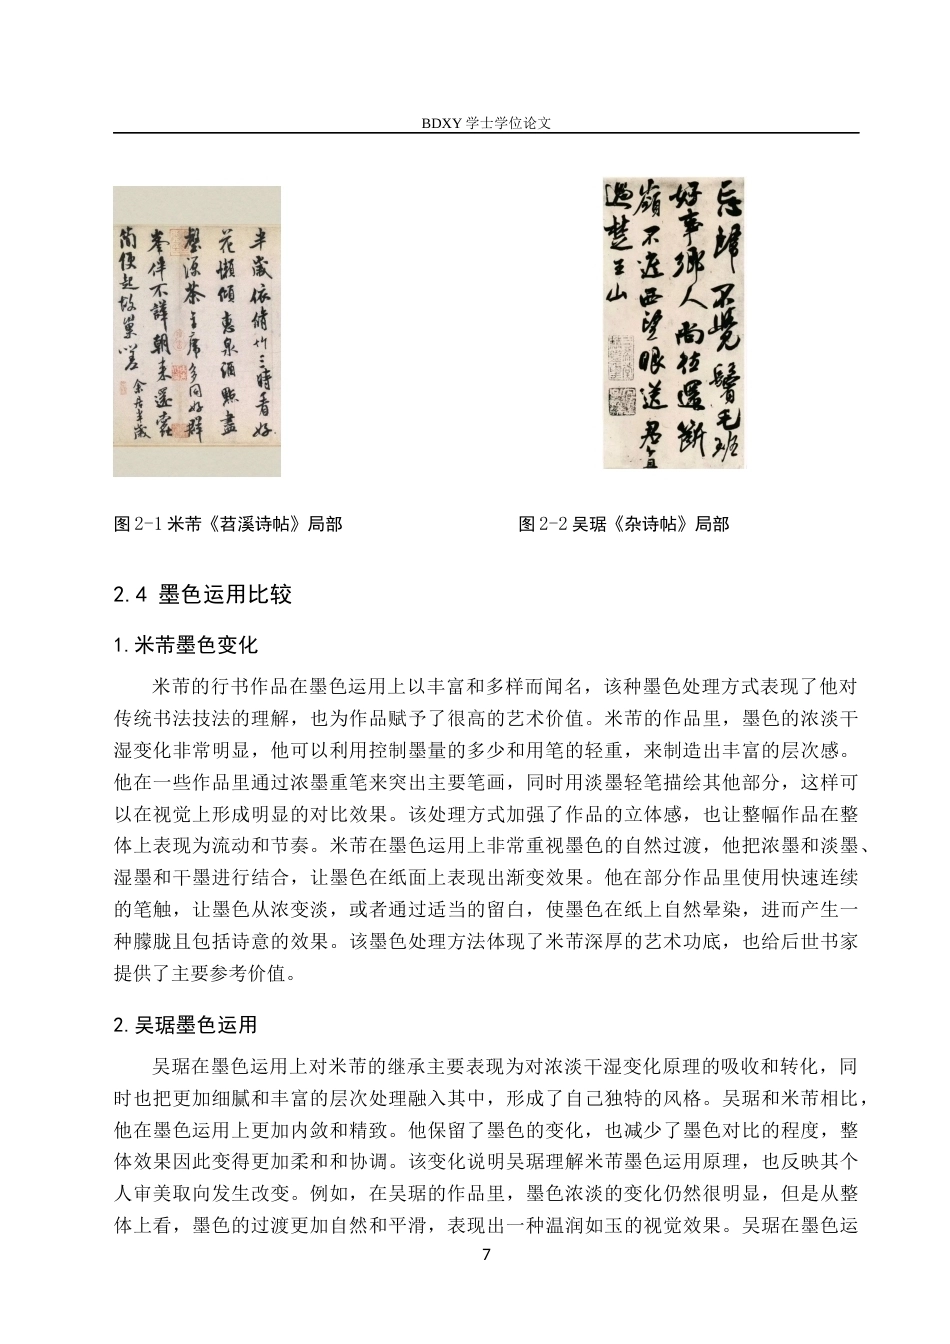 BDXY 学士学位论文
半岁依修竹三时看好
花懒倾惠泉酒点尽
壑源茶主席多同好群
峰伴不哗朝来还蠹
简便起故巢嗟
余居半岁
忘归不觉鬓毛斑
好事乡人尚往还断
岭不遮西望眼送君直
过楚王山
图 2-1 米芾《苕溪诗帖》局部
图 2-2 吴琚《杂诗帖》局部
2.4 墨色运用比较
1.米芾墨色变化
米芾的行书作品在墨色运用上以丰富和多样而闻名，该种墨色处理方式表现了他对
传统书法技法的理解，也为作品赋予了很高的艺术价值。米芾的作品里，墨色的浓淡干
湿变化非常明显，他可以利用控制墨量的多少和用笔的轻重，来制造出丰富的层次感。
他在一些作品里通过浓墨重笔来突出主要笔画，同时用淡墨轻笔描绘其他部分，这样可
以在视觉上形成明显的对比效果。该处理方式加强了作品的立体感，也让整幅作品在整
体上表现为流动和节奏。米芾在墨色运用上非常重视墨色的自然过渡，他把浓墨和淡墨、
湿墨和干墨进行结合，让墨色在纸面上表现出渐变效果。他在部分作品里使用快速连续
的笔触，让墨色从浓变淡，或者通过适当的留白，使墨色在纸上自然晕染，进而产生一
种朦胧且包括诗意的效果。该墨色处理方法体现了米芾深厚的艺术功底，也给后世书家
提供了主要参考价值。
2.吴琚墨色运用
吴琚在墨色运用上对米芾的继承主要表现为对浓淡干湿变化原理的吸收和转化，同
时也把更加细腻和丰富的层次处理融入其中，形成了自己独特的风格。吴琚和米芾相比，
他在墨色运用上更加内敛和精致。他保留了墨色的变化，也减少了墨色对比的程度，整
体效果因此变得更加柔和和协调。该变化说明吴琚理解米芾墨色运用原理，也反映其个
人审美取向发生改变。例如，在吴琚的作品里，墨色浓淡的变化仍然很明显，但是从整
体上看，墨色的过渡更加自然和平滑，表现出一种温润如玉的视觉效果。吴琚在墨色运
7